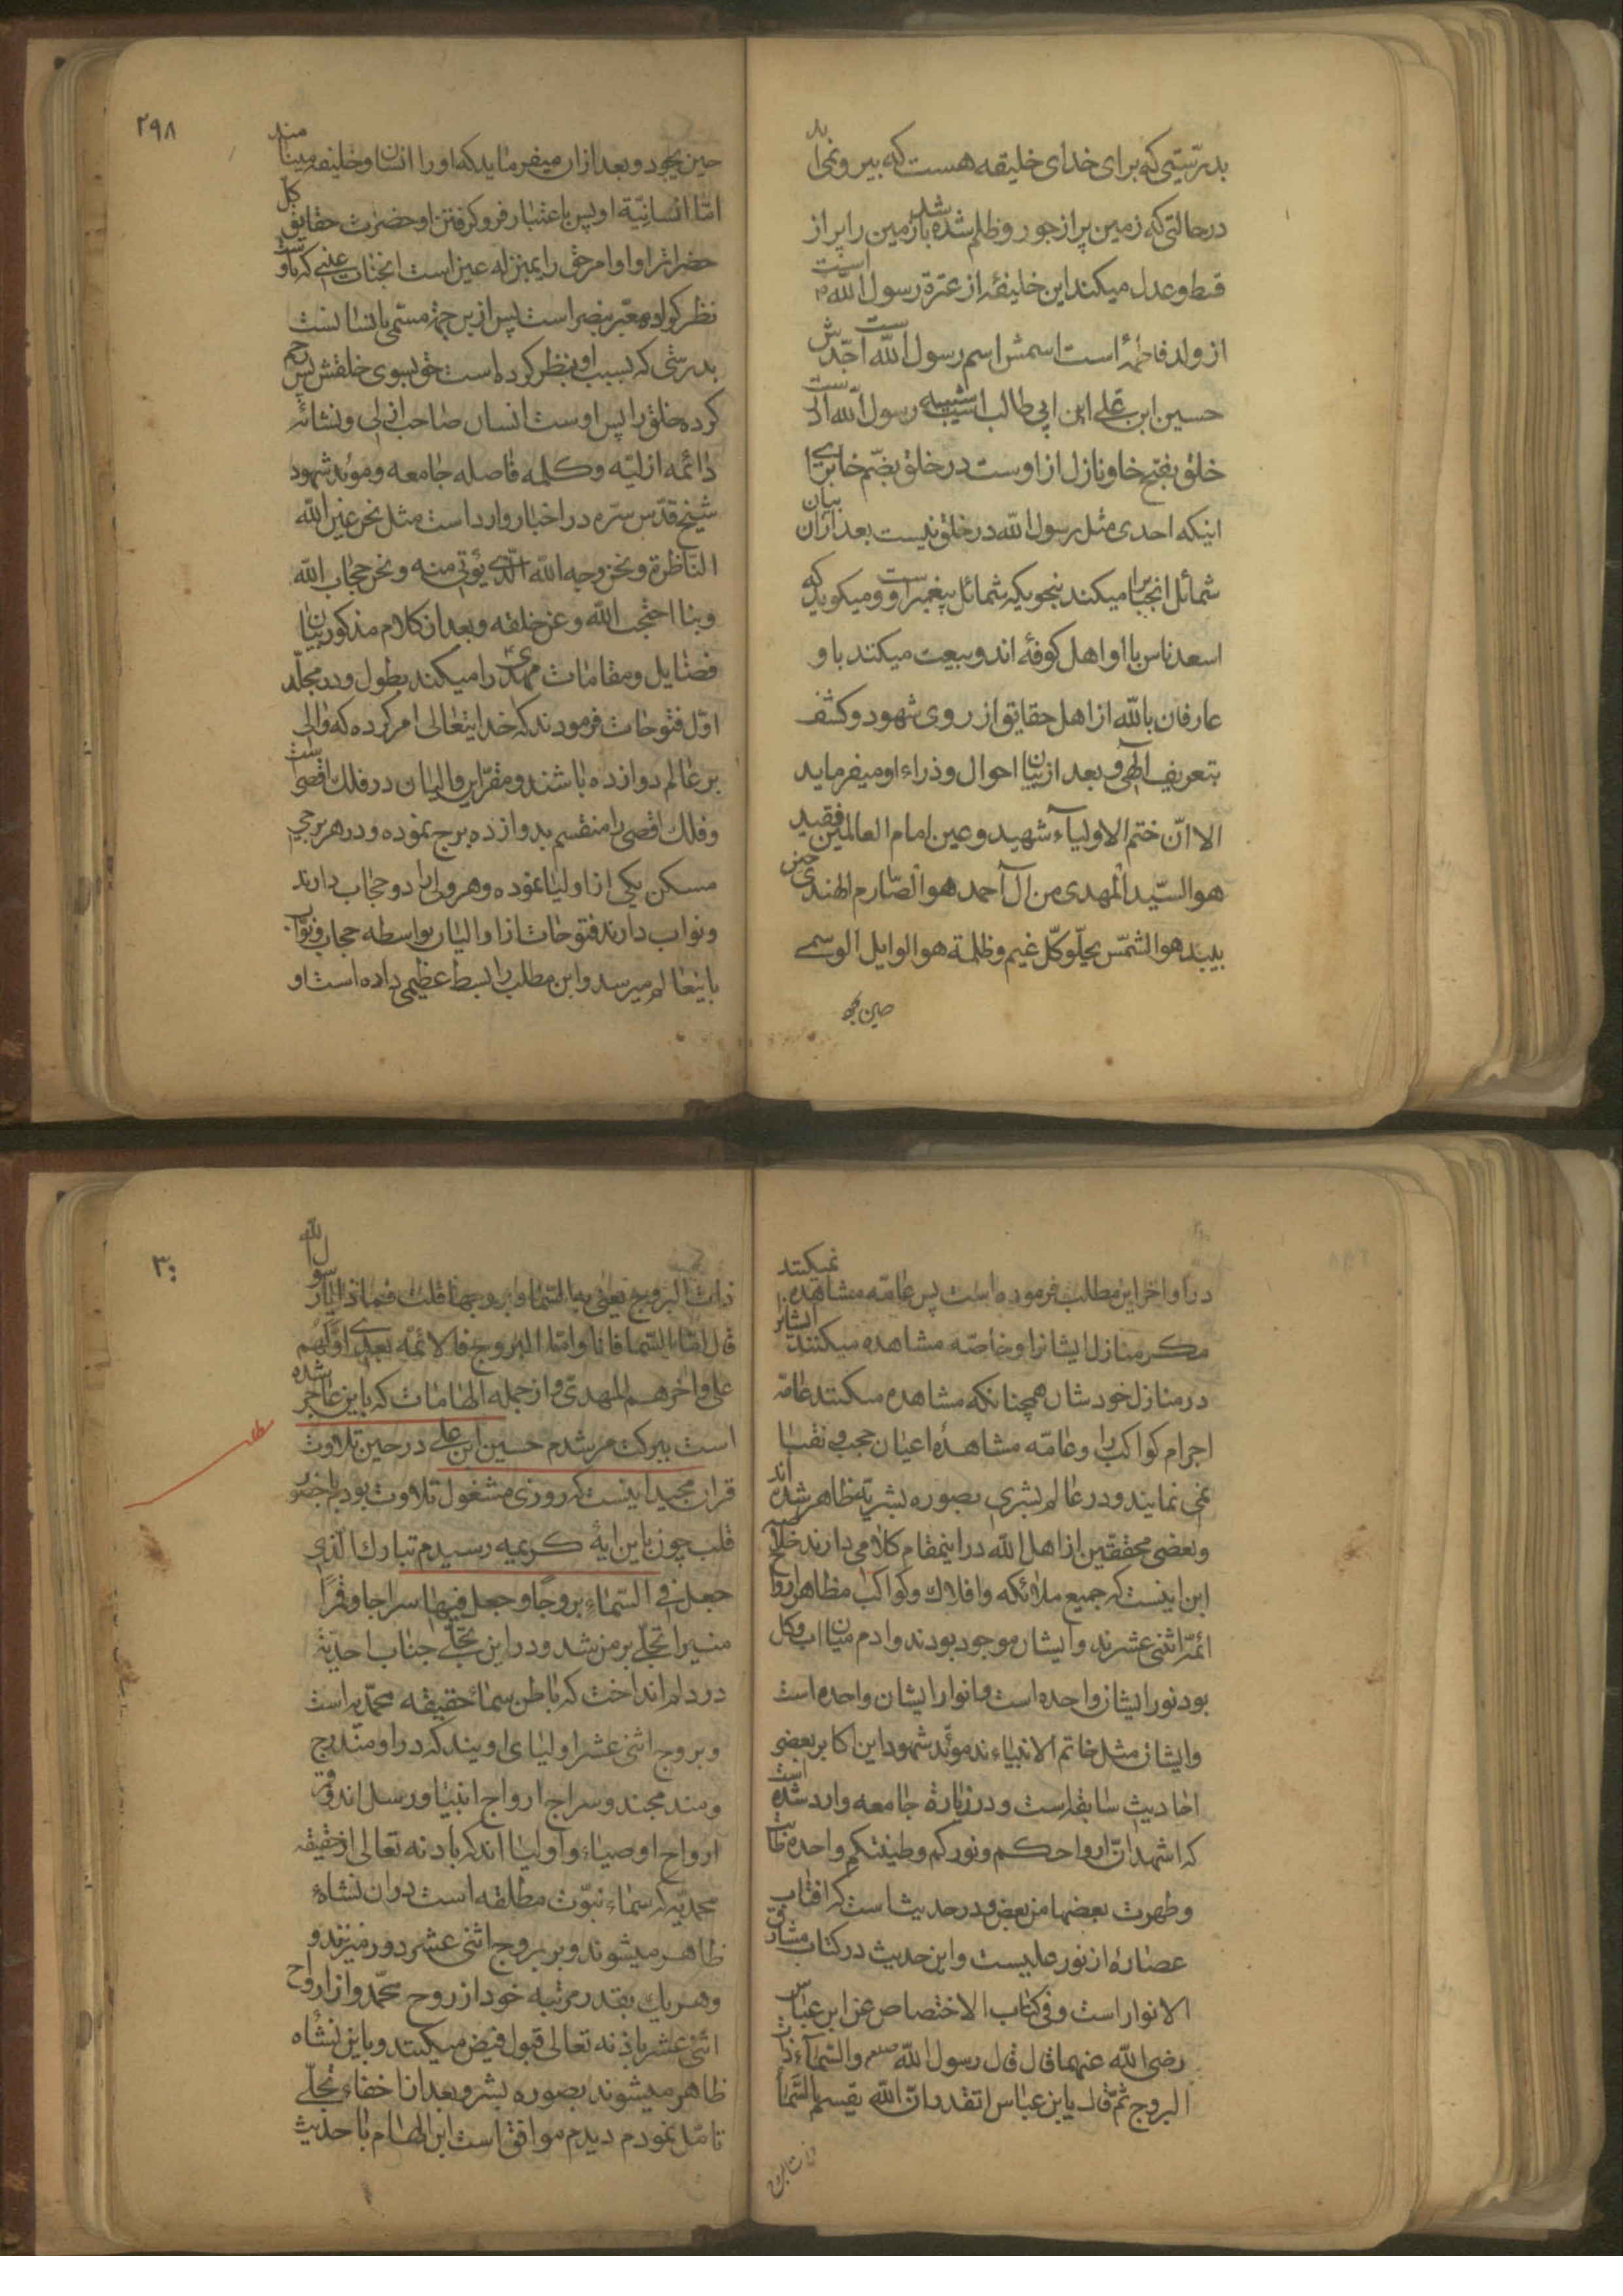 بدرستیی که برای خدای خلیفه هست که بیرون می‌آید
در حالتی که زمین پر از جور و ظلم شده باشد زمین را پر از
قسط و عدل میکند این خلیفه از عترة رسول الله است
از ولد فاطمه است اسمش اسم رسول الله است جدش
حسین ابن علی ابن ابی طالب است شبیه رسول الله
خلق بفتح خا و نازل از اوست در خلق بضم خا برای
اینکه احدی مثل رسول الله در خلق نیست بعد از آن بیان
شمائل انجناب را میکند بنحویکه شمائل پیغمبر است و میکوید که
اسعد ناس با او اهل کوفه اند و بیعت میکنند با و
عارفان بالله از اهل حقایق از روی شهود و کشف
بتعریف الهی و بعد از بیان احوال وزراء او میفرماید
الا ان ختم الاولیاء شهید و عین امام العالمین فقید
هو السید المهدی من آل احمد هو الصارم الهندی حین
یبید هو الشمس یجلو کل غیم و ظلمة هو الوابل الوسمی
حین یجود
۲۹۸
حین یجود و بعد از ان میفرماید که او را انسان و خلیفه مینامند
اما انسانیة او پس باعتبار فرو کرفتن او حضرت حقایق کل
حضرات را و او مر حق را بمنزله عین است انچنان عینی که باوست
نظر کو او معبر ببصر است پس از این جهة مسمی بانسانست
بدرستی که بسبب او نظر کرده است حق بسوی خلقش پس رحم
کرده خلق را پس اوست انسان صاحب ازلی و نشائه
دائمه ازلیه و کلمه فاصله جامعه و موید شهود
شیخ قدس سره در اخبار وارد است مثل نحن عین الله
الناظرة و نحن وجه الله الذی یؤتی منه و نحن حجاب الله
و بنا احتجب الله و عن خلقه و بعد از کلام مذکور بیان
فضایل و مقامات مهدی را میکند بطول و در مجلد
اول فتوحات فرمودند که خدایتعالی امر کرده که والی
بر عالم دوازده باشند و مقر این والیان در فلک اقصی است
و فلک اقصی را منقسم بدوازده برج نموده و در هر برجی
مسکن یکی از اولیا نموده و هر ولی را دو حجاب دارند
و نواب دارند فتوحات از والیان بواسطه حجاب و نواب
باینعالم میرسد و این مطلب را بسط عظیمی داده است او
در اواخر این مطلب فرموده است پس عامه مشاهده نمیکنند
مکر منازل ایشانرا و خاصه مشاهده میکنند ایشانرا
در منازل خودشان همچنانکه مشاهده میکنند عامه
اجرام کواکب را و عامه مشاهدهٔ اعیان حجب و نقبا
نمی نمایند و در عالم بشری بصوره بشریة ظاهر شده اند
و بعضی محققین از اهل الله در اینمقام کلامی دارند خلاصه
این اینست که جمیع ملائکه و افلاک و کواکب مظاهر ارواح
ائمه اثنی عشرند و ایشان موجود بودند و ادم میان اب و کل
بود نور ایشان واحده است و انوار ایشان واحده است
و ایشان مثل خاتم الانبیاءند موید شهود این اکابر بعضی
احادیث سابقه است و در زیارة جامعه وارد شده است
که اشهد ان ارواحکم و نورکم و طینتکم واحدة طابت
و طهرت بعضها من بعض و در حدیث است که افتاب
عصارهٔ از نور علیست و این حدیث در کتاب مشارق
الانوار است و فی کتاب الاختصاص عن ابن عباس
رضی الله عنهما قال قال رسول الله صلعم والسماء ذات
البروج ثم قال یابن عباس اتقدر ان الله یقسم بالسماء
ذات البروج
۳۰
ذات البروج یعنی به السماء و بروجها قلت فما ذا یا رسول الله
قال اما السما فانا و اما البروج فالائمة بعدی اولهم
علی و اخرهم المهدی و از جمله الهامات که باین عاجز شده
است ببرکت مرشدم حسین ابن علی در حین تلاوت
قران مجید اینست که روزی مشغول تلاوت بودم با حضور
قلب چون باین ایهٔ کریمه رسیدم تبارک الذی
جعل فی السماء بروجا و جعل فیها سراجا و قمرا
منیرا تجلی بر من شد و در این تجلی جناب احدیة
در دلم انداخت که باطن سماء حقیقه محمدیه است
و بروج اثنی عشر اولیای اویند که در او مندرج
و مندمجند و سراج ارواح انبیا و رسل اند و قمر
ارواح اوصیاء و اولیا اند که باذنه تعالی از حقیقه
محمدیه که سماء نبوت مطلقه است در ان نشاهٔ
ظاهر میشوند و بر بروج اثنی عشر دور میزنند و
و هر یک بقدر مرتبه خود از روح محمد و از ارواح
اثنی عشر باذنه تعالی قبول فیض میکنند و باین نشاه
ظاهر میشوند بصوره بشر و بعد از اخفاء تجلی
تامل نمودم دیدم موافق است این الهام با حدیث